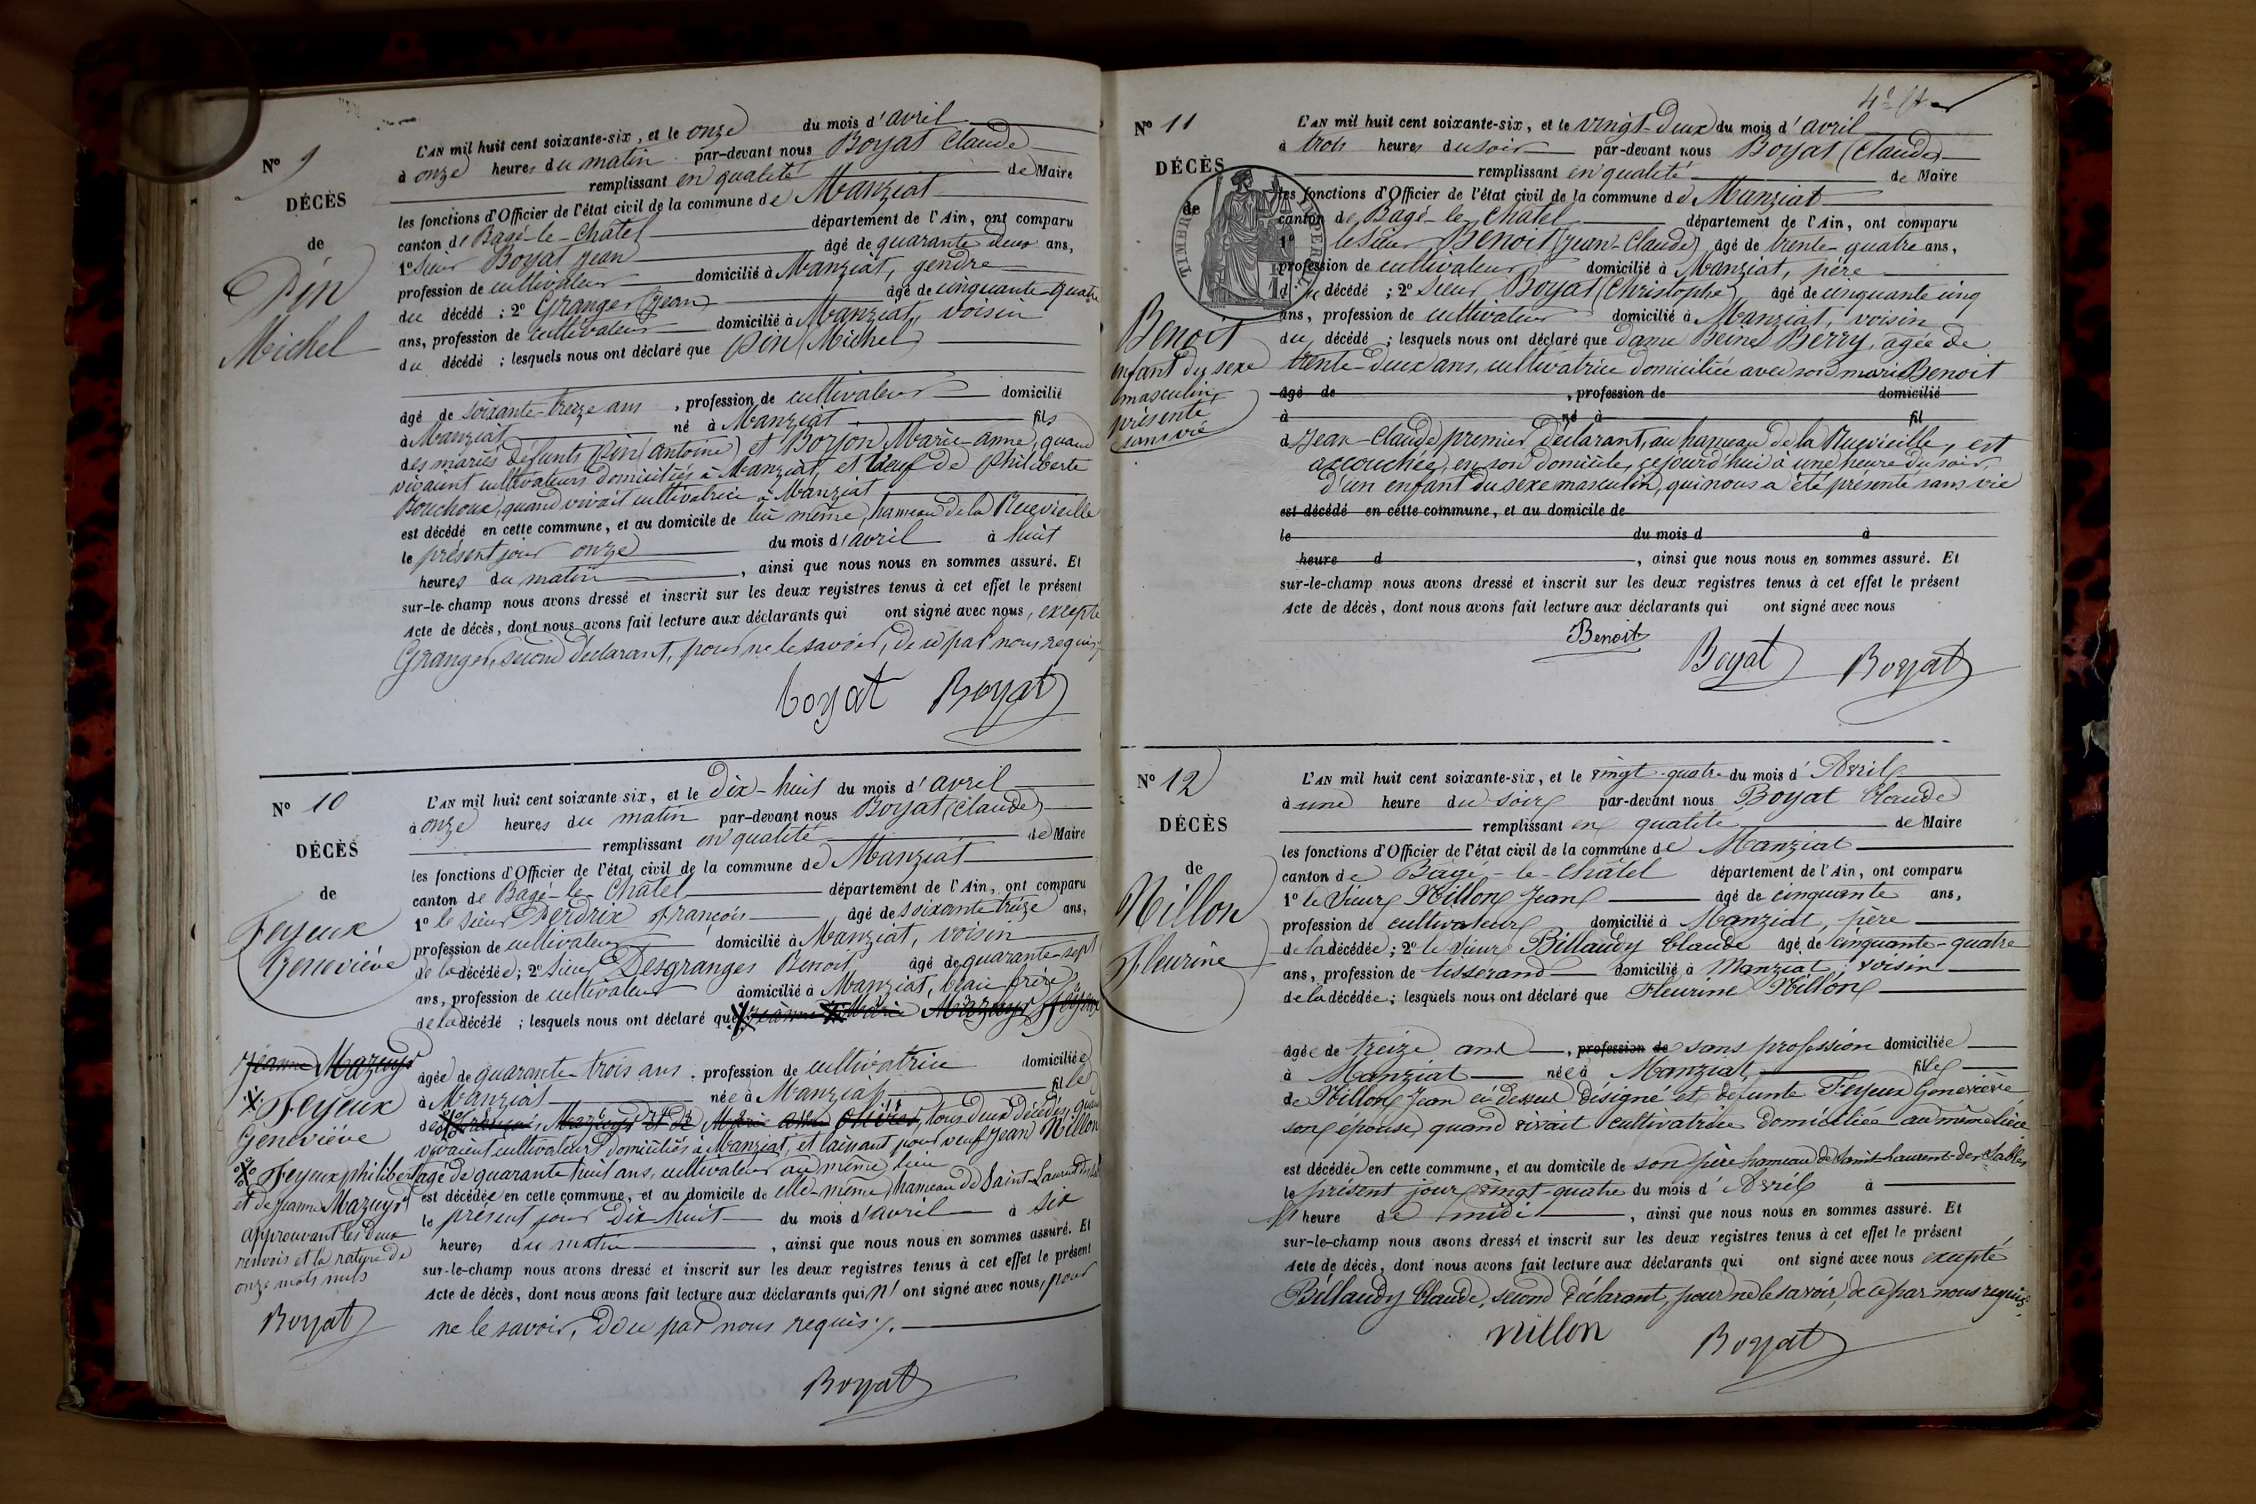 L'AN mil huit cent soixante-six, et le onze du mois d'avril
N° 9
à onze heures du matin par-devant nous Boyat Claude
remplissant en qualité de Maire
DÉCÈS
les fonctions d'Officier de l'état civil de la commune de Manziat
de
canton de Bagé-le-Châtel département de l'Ain, ont comparu
1° Sieur Boyat Jean âgé de quarante deux ans,
Pin
profession de cultivateur domicilié à Manziat, gendre
du décédé ; 2° Granger (Jean) âgé de cinquante-quatre
Michel
ans, profession de cultivateur domicilié à Manziat, voisin
du décédé ; lesquels nous ont déclaré que Pin (Michel)
âgé de soixante-treize ans, profession de cultivateur domicilié
à Manziat né à Manziat fils
des mariés défunts Pin (Antoine) et Borjon Marie-anne, quand
vivaient cultivateurs domiciliés à Manziat, et veuf de Philiberte
Bouchoux, quand vivait cultivatrice à Manziat
est décédé en cette commune, et au domicile de lui même, hameau de la Ruevieille
le présent jour onze du mois d'avril à huit
heures du matin, ainsi que nous nous en sommes assuré. Et
sur-le-champ nous avons dressé et inscrit sur les deux registres tenus à cet effet le présent
Acte de décès, dont nous avons fait lecture aux déclarants qui ont signé avec nous, excepté
Granger, second déclarant, pour ne le savoir, de ce par nous requis
boyat Boyat
L'AN mil huit cent soixante six, et le dix-huit du mois d'avril
N° 10
à onze heures du matin par-devant nous Boyat (Claude)
remplissant en qualité de Maire
DÉCÈS
les fonctions d'Officier de l'état civil de la commune de Manziat
de
canton de Bagé-le-Châtel département de l'Ain, ont comparu
1° le sieur Perdrix François âgé de soixante treize ans,
Feyeux
profession de cultivateur domicilié à Manziat, voisin
Geneviève
de la décédée ; 2° sieur Desgranges Benoit âgé de quarante-sept
ans, profession de cultivateur domicilié à Manziat, beau frère
de la décédé ; lesquels nous ont déclaré que Jeanne Marie Mazuyr Feyeux
Jeanne Mazuyr
âgée de quarante-trois ans, profession de cultivatrice domiciliée
à Manziat née à Manziat fille
Feyeux
Geneviève
de Mazuyr et de Marie, tous deux décédés, quand
vivaient cultivateurs domiciliés à Manziat, et laissant pour veuf Jean Nillon
Feyeux philibert
âgé de quarante huit ans, cultivateur au même lieu
et de Jeanne Mazuyr
est décédée en cette commune, et au domicile de elle-même, hameau de Saint-Laurent
approuvant les deux
renvois et la rature de
onze mots nuls
le présent jour dix-huit du mois d'avril à six
heures du matin, ainsi que nous nous en sommes assuré. Et
sur-le-champ nous avons dressé et inscrit sur les deux registres tenus à cet effet le présent
Acte de décès, dont nous avons fait lecture aux déclarants qui n'ont signé avec nous, pour
Boyat
ne le savoir, de ce par nous requis
Boyat
N° 11
L'AN mil huit cent soixante-six, et le vingt-deux du mois d'avril
à trois heures du soir par-devant nous Boyat (Claude)
DÉCÈS
remplissant en qualité de Maire
les fonctions d'Officier de l'état civil de la commune de Manziat
de
canton de Bagé-le-Châtel département de l'Ain, ont comparu
TIMBRE IMPERIAL
1° le sieur Benoit (Jean-Claude) âgé de trente-quatre ans,
profession de cultivateur domicilié à Manziat, père
du décédé ; 2° sieur Boyat (Christophe) âgé de cinquante cinq
ans, profession de cultivateur domicilié à Manziat, voisin
Benoit
du décédé ; lesquels nous ont déclaré que dame Reine Berry, agée de
enfant du sexe
trente-deux ans, cultivatrice domiciliée avec son mari Benoit
masculin
âgé de, profession de domicilié
présenté
à né à fil
sans vie
d Jean-Claude, premier déclarant, au hameau de la Ruevieille, est
accouchée, en son domicile, cejourd'hui à une heure du soir,
d'un enfant du sexe masculin, qui nous a été présenté sans vie
est décédé en cette commune, et au domicile de
le du mois d à
heure d, ainsi que nous nous en sommes assuré. Et
sur-le-champ nous avons dressé et inscrit sur les deux registres tenus à cet effet le présent
Acte de décès, dont nous avons fait lecture aux déclarants qui ont signé avec nous
Benoit Boyat Boyat
N° 12
L'AN mil huit cent soixante-six, et le vingt-quatre du mois d'Avril
à une heure du soir par-devant nous Boyat Claude
DÉCÈS
remplissant en qualité de Maire
les fonctions d'Officier de l'état civil de la commune de Manziat
de
canton de Bagé-le-Châtel département de l'Ain, ont comparu
1° le Sieur Nillon Jean âgé de cinquante ans,
Nillon
profession de cultivateur domicilié à Manziat, père
de la décédée ; 2° le Sieur Billaudy Claude âgé de cinquante-quatre
Fleurine
ans, profession de tisserand domicilié à Manziat, voisin
de la décédée ; lesquels nous ont déclaré que Fleurine Nillon
âgée de treize ans, profession de sans profession domiciliée
à Manziat née à Manziat, fille
de Nillon Jean ci-dessus désigné et de défunte Feyeux Geneviève
son épouse, quand vivait cultivatrice domiciliée au même lieu
est décédée en cette commune, et au domicile de son père hameau de Saint-Laurent-des-Sables
le présent jour vingt-quatre du mois d'Avril à
heure de midi, ainsi que nous nous en sommes assuré. Et
sur-le-champ nous avons dressé et inscrit sur les deux registres tenus à cet effet le présent
Acte de décès, dont nous avons fait lecture aux déclarants qui ont signé avec nous excepté
Billaudy Claude, second déclarant, pour ne le savoir, de ce par nous requis
nillon Boyat